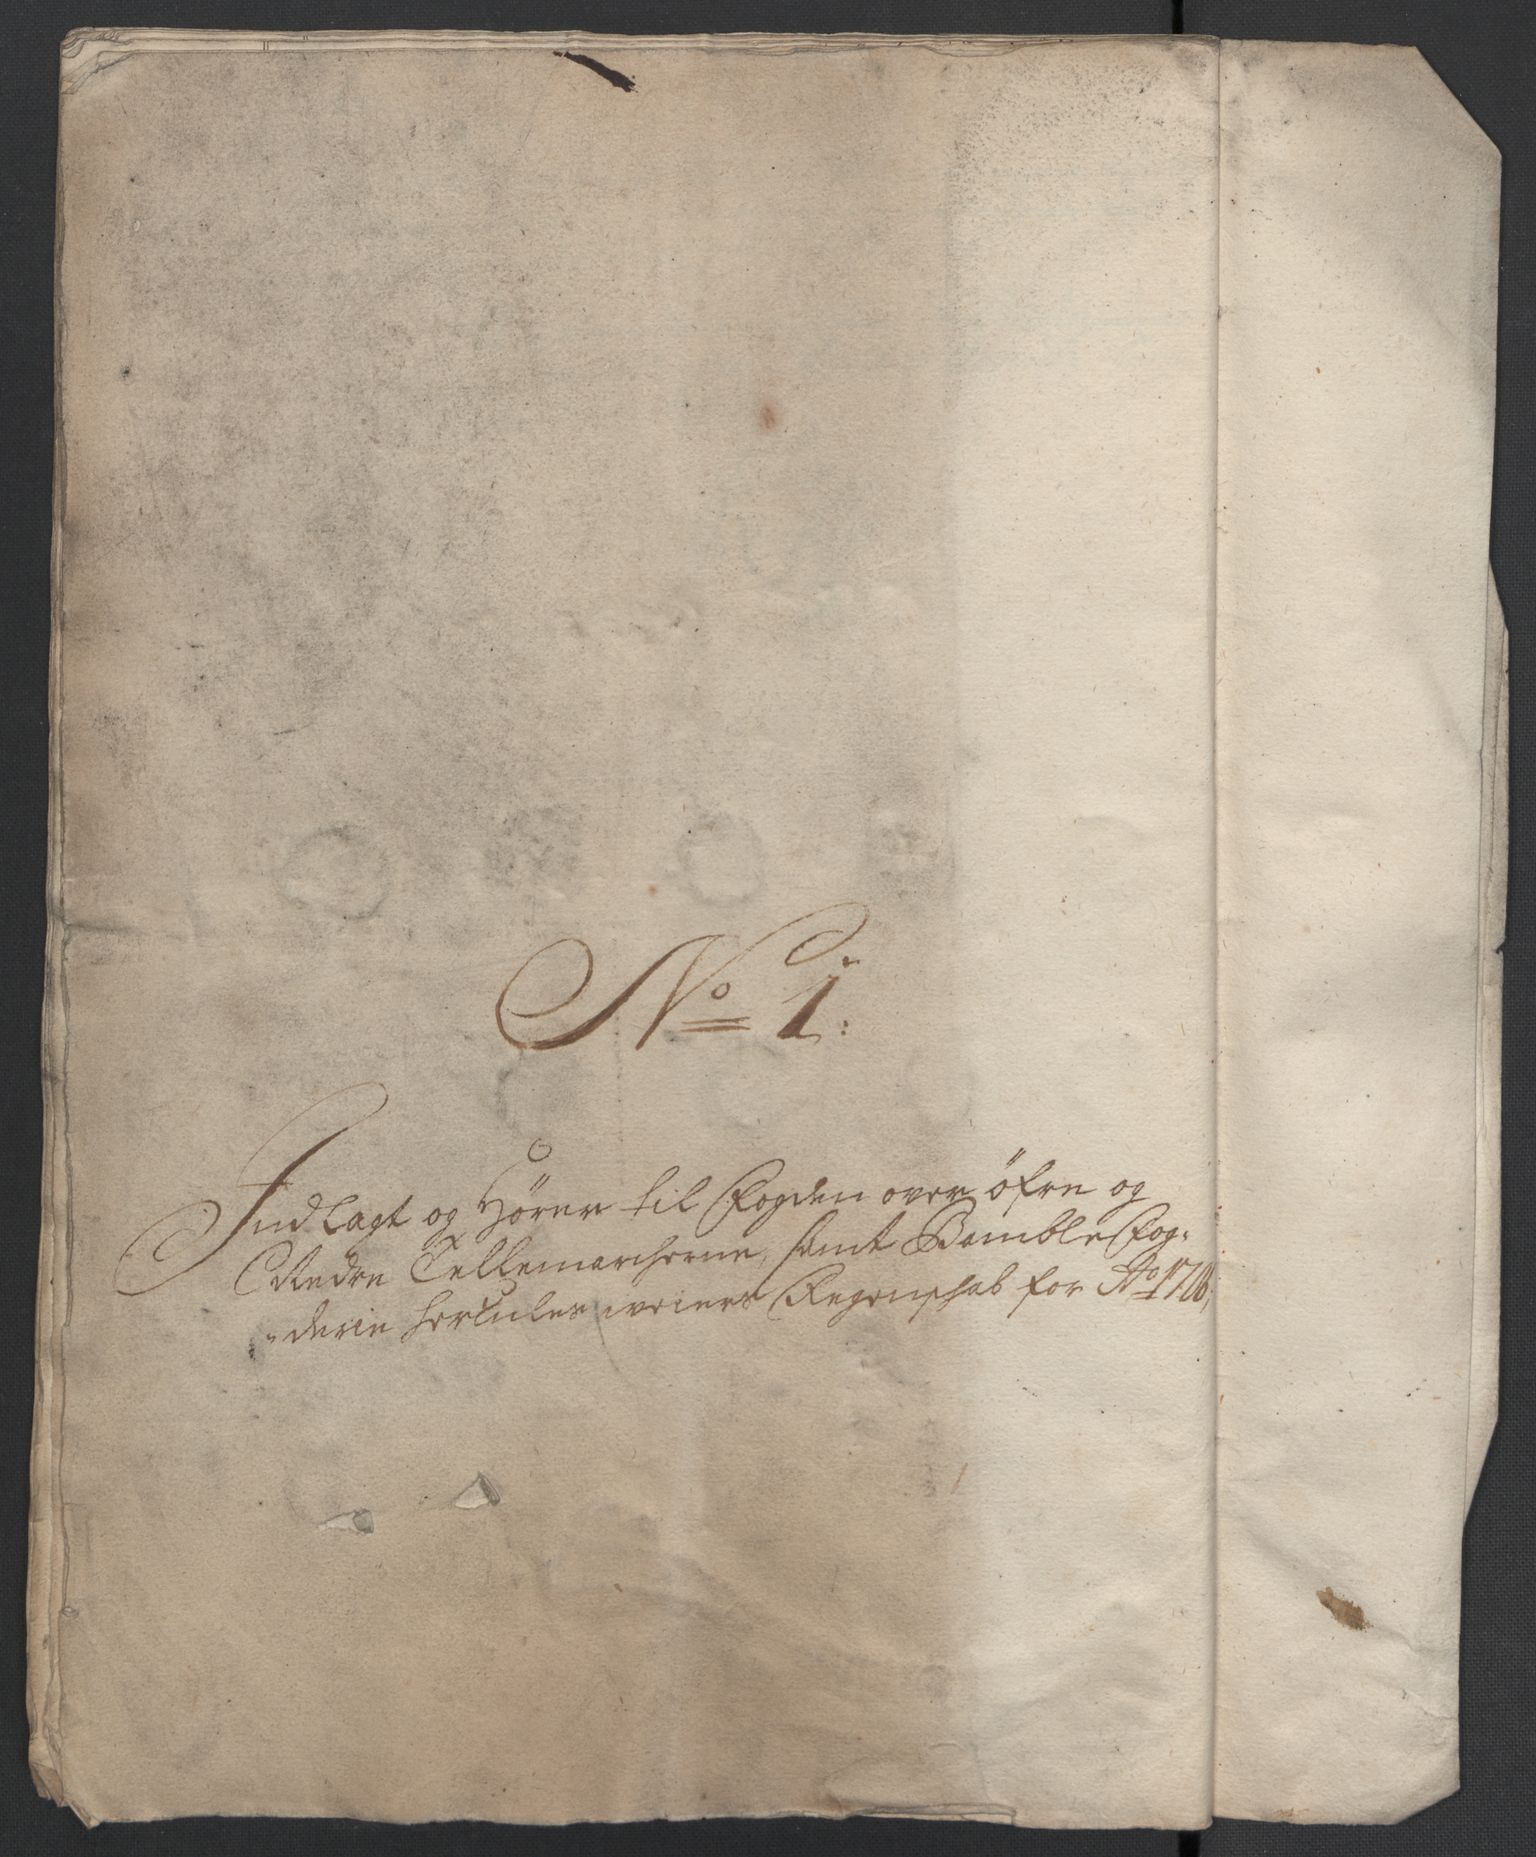 No 1:
Indlagt og Hörer til Fogden over öfre og
Nedre Tellemarcherne, samt Bamble Fog-
-derie Hercules Weiers Regenschab for Ao 1710,